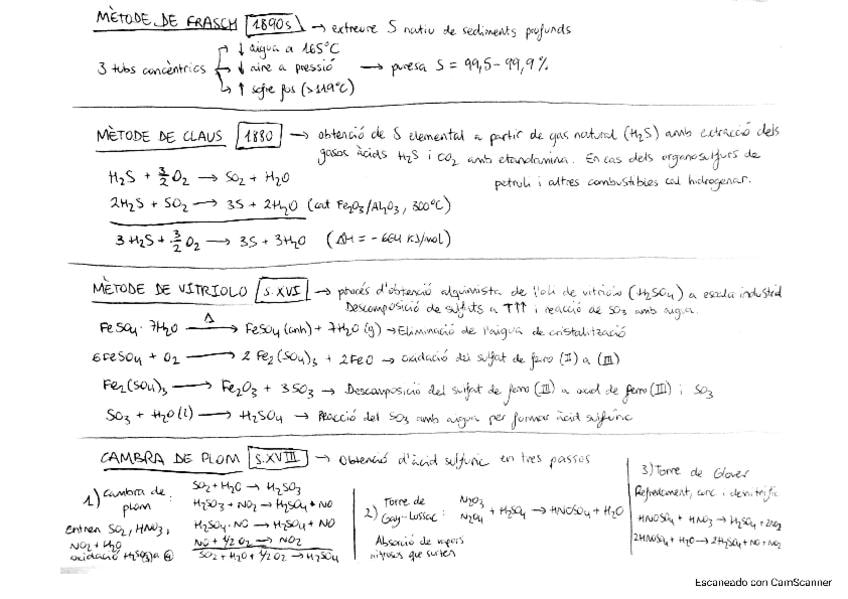 MÈTODE DE FRASCH 1890s → extreure S natiu de sediments profunds
3 tubs concèntrics
↓ aigua a 165°C
↓ aire a pressió → puresa S = 99,5-99,9%
↑ sofre fos (>119°C)
MÈTODE DE CLAUS 1880 → obtenció de S elemental a partir de gas natural (H₂S) amb extracció dels
gasos àcids H₂S i CO₂ amb etanolamina. En cas dels organosulfurs de
petroli i altres combustibles cal hidrogenar.
H₂S + 3/2 O₂ → SO₂ + H₂O
2H₂S + SO₂ → 3S + 2H₂O (cat Fe₂O₃/Al₂O₃, 300°C)
3H₂S + 3/2 O₂ → 3S + 3H₂O (ΔH = -664 KJ/mol)
MÈTODE DE VITRIOLO S.XVI → procés d'obtenció alquimista de l'oli de vitriolo (H₂SO₄) a escala industrial
Descomposició de sulfats a T↑↑ i reacció de SO₃ amb aigua.
FeSO₄·7H₂O Δ→ FeSO₄(anh) + 7H₂O(g) → Eliminació de l'aigua de cristalització
6FeSO₄ + O₂ → 2Fe₂(SO₄)₃ + 2FeO → oxidació del sulfat de ferro (II) a (III)
Fe₂(SO₄)₃ → Fe₂O₃ + 3SO₃ → Descomposició del sulfat de ferro (III) a oxid de ferro (III) i SO₃
SO₃ + H₂O(l) → H₂SO₄ → Reacció del SO₃ amb aigua per formar àcid sulfúric
CAMBRA DE PLOM S.XVIII → Obtenció d'àcid sulfúric en tres passos
1) Cambra de plom:
Entren SO₂, HNO₃,
NO₂ + H₂O
oxidació H₂SO₃ a
SO₂ + H₂O → H₂SO₃
H₂SO₃ + NO₂ → H₂SO₄ + NO
H₂SO₄·NO → H₂SO₄ + NO
NO + 1/2 O₂ → NO₂
SO₂ + H₂O + 1/2 O₂ → H₂SO₄
2) Torre de Gay-Lussac:
N₂O₃
N₂O₄ + H₂SO₄ → HNOSO₄ + H₂O
Absorció de vapors
nitrosos que surten
3) Torre de Glover
Refredament, conc i desnitrific
HNOSO₄ + HNO₃ → H₂SO₄ + 2NO₂
2HNOSO₄ + H₂O → 2H₂SO₄ + NO + NO₂
Escaneado con CamScanner